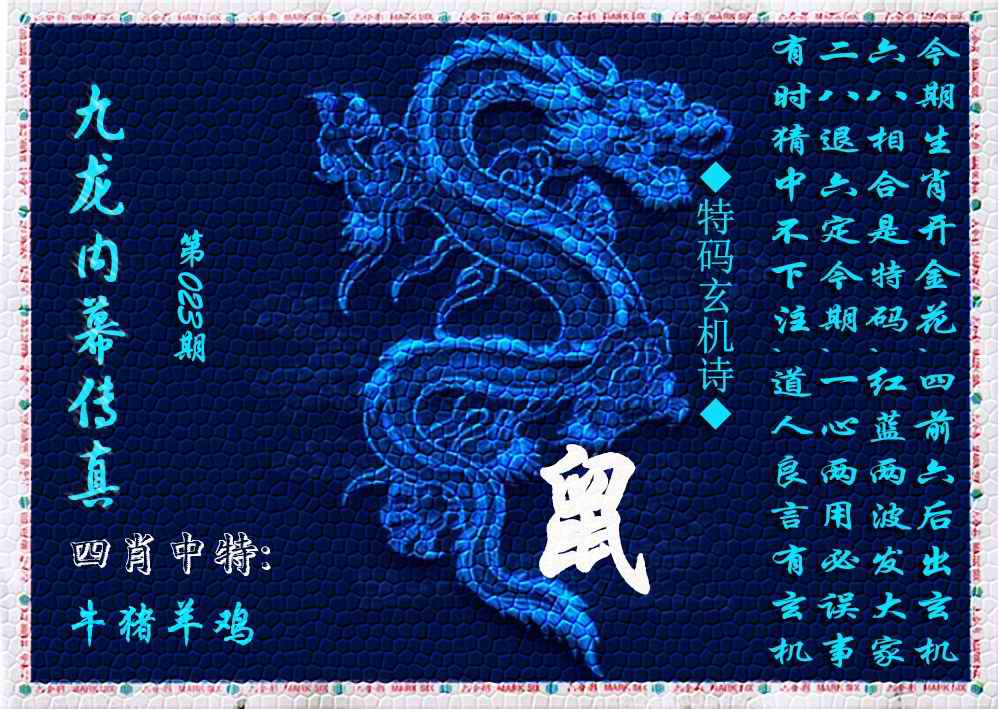 九龙内幕传真
第023期
◆特码玄机诗◆
今期生肖开金花、四前六后出玄机
六八相合是特码、红蓝两波发大家
二八退六定今期、一心两用必误事
有时猜中不下注、道人良言有玄机
鼠
四肖中特:
牛猪羊鸡
六合彩 MARK SIX